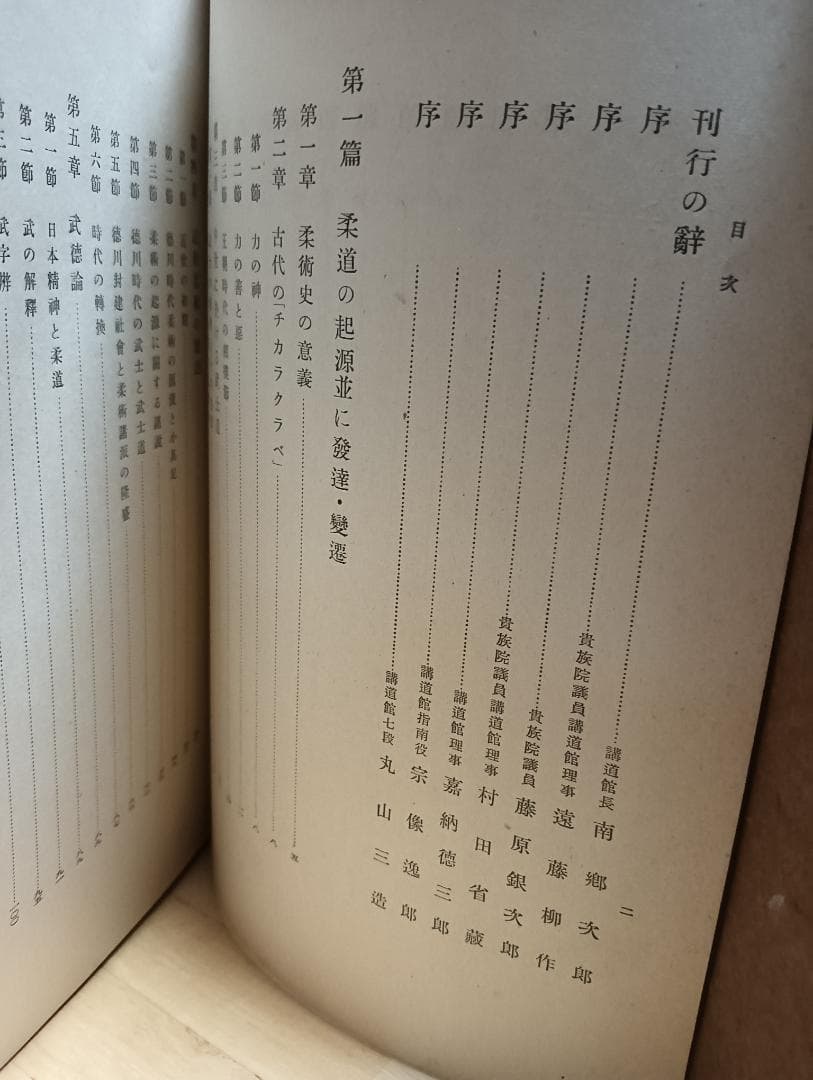 目次
刊行の辭
二
序 講道館長 南郷次郎
序 貴族院議員講道館理事 遠藤柳作
序 貴族院議員 藤原銀次郎
序 貴族院議員講道館理事 村田省藏
序 講道館理事 嘉納德三郎
序 講道館指南役 宗像逸郎
序 講道館七段 丸山三造
第一篇 柔道の起源並に發達・變遷
第一章 柔術史の意義 五
第二章 古代の「チカラクラベ」 八
第一節 力の神 八
第二節 力の善と惡
第三節 王朝時代の相撲節
第一節
第二節 德川時代柔術の
第三節 柔術の起源に關する諸說
第四節 德川時代の武士と武士道
第五節 德川封建社會と柔術諸派の隆盛
第六節 時代の轉換
第五章 武德論
第一節 日本精神と柔道
第二節 武の解釋
第三節 武字辨 一〇〇